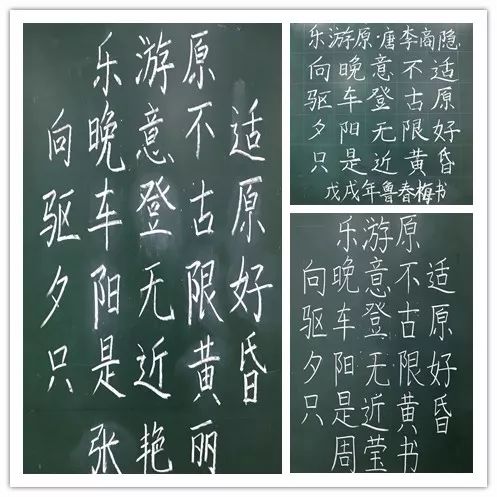 乐游原
向晚意不适
驱车登古原
夕阳无限好
只是近黄昏
张艳丽
乐游原·唐李商隐
向晚意不适
驱车登古原
夕阳无限好
只是近黄昏
戊戌年鲁春梅书
乐游原
向晚意不适
驱车登古原
夕阳无限好
只是近黄昏
周莹书